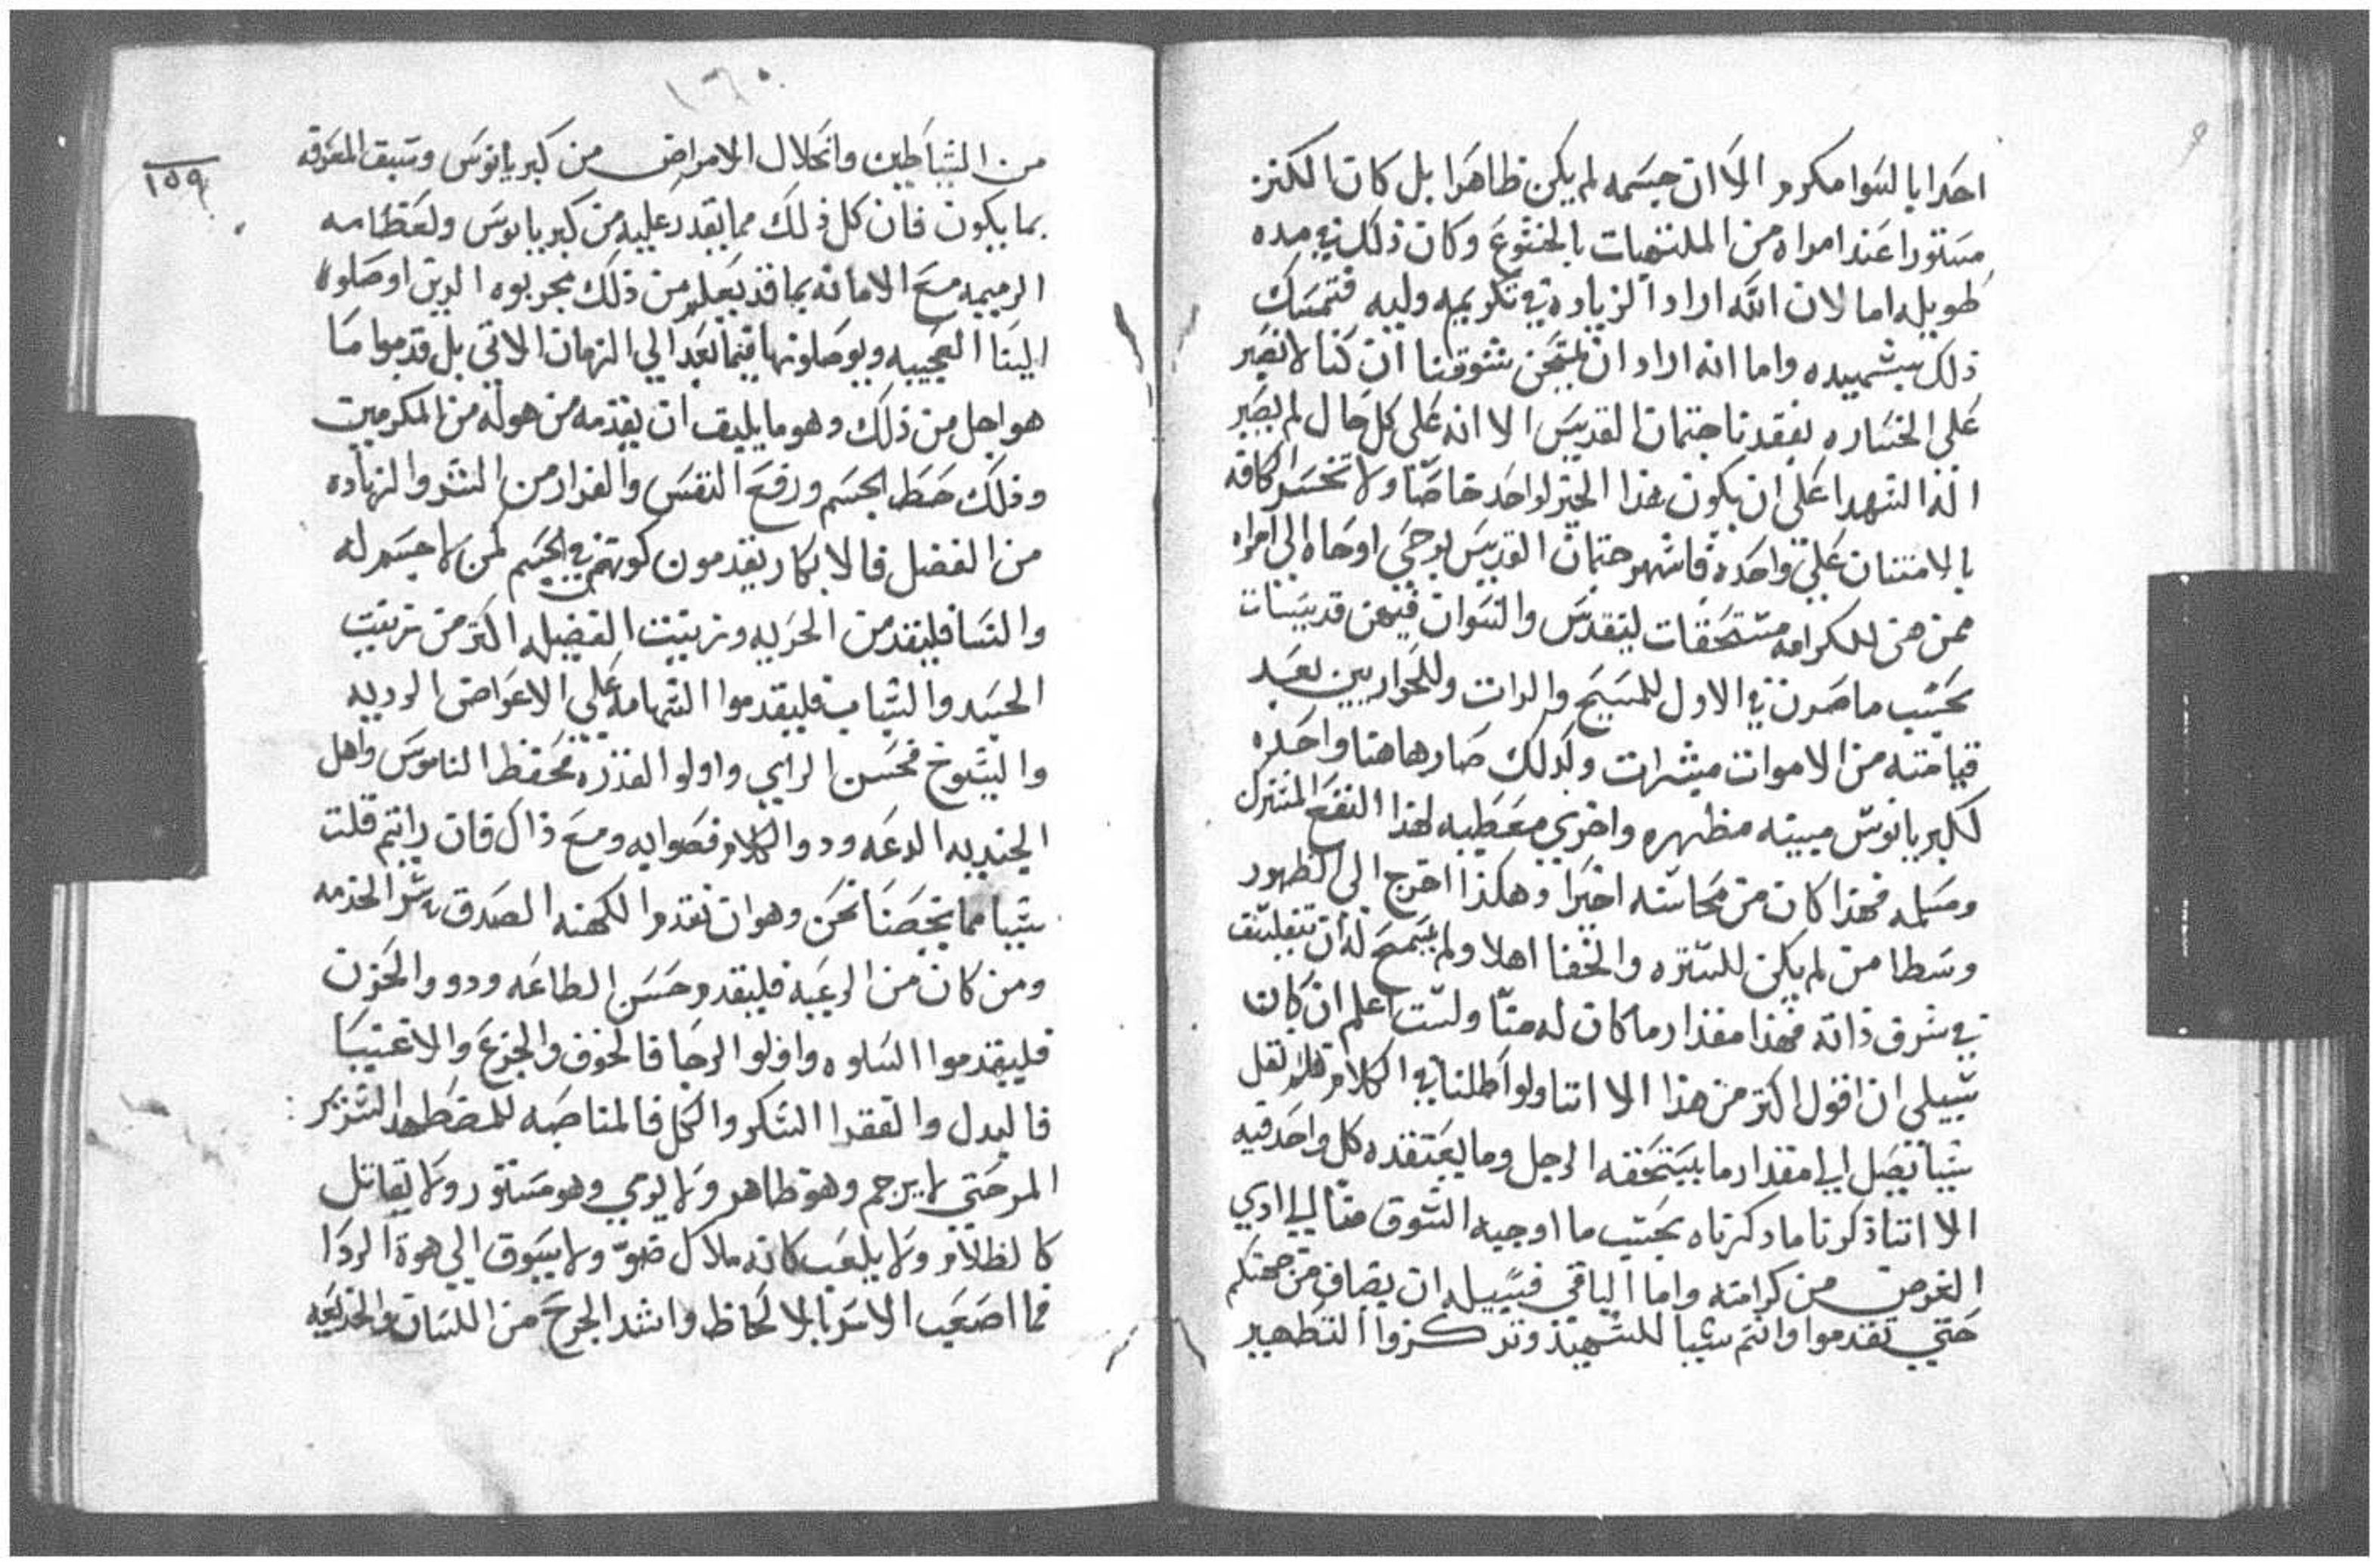 احدا بالسوا مكرم الا ان جسمه لم يكن ظاهرا بل كان الكنز
مستورا عند امراه من الملتهبات بالخشوع وكان ذلك في مده
طويله اما لان الله اراد الزياده في تكريمه وليه فتمسك
ذلك بشهيده واما انه اراد ان يمتحن شوقنا ان كنا لا نصبر
على الخساره بفقدنا جتمان القديس الا انه على كل حال لم يصبر
اله الشهدا على ان يكون هذا الخير لواحد خاصا ولا تخسر الكافه
بالامتنان على واحده فاشهر جتمان القديس بوحي اوحاه الى امراه
ممن هن للكرامه مستحقات ليتقدس والنسوان فيهن قديسات
بحسب ما صرن في الاول للمسيح والدات وللحواريين بعد
قيامته من الاموات مبشرات وكذلك صار هاهنا واحده
لكبريانوس مبينه مظهره واخري معطيه لهذا النفع المشترك
ومسلمه فهذا كان من محاسنه اخيرا وهكذا اخرج الى الظهور
وسطا من لم يكن للستره والخفا اهلا ولم يسمح له ان
في شرف ذاته فهذا مقدار ما كان له منا ولست اعلم ان كان
سبيلي ان اقول اكتر من هذا الا اننا ولو اطلنا في الكلام فلم نقل
شيا تصل الي مقدار ما يستحقه الرجل وما يعتقده كل واحد فيه
الا اننا ذكرنا ما دكرناه بحسب ما اوجبه الشوق منا الي ادي
الغرض من كرامته واما الباقي فسبيله ان يضاف من جهتكم
حتي تقدموا وانتم شيا للشهيد وتدكروا التطهير
١٦٠
١٥٩
من الشياطين وانحلال الامراض من كبريانوس وسبق المعرفه
بما يكون فان كل ذلك مما يقدر عليه من كبريانوس ولعظامه
الرميمه مع الامانه بما قد يعلم من ذلك مجربوه الدين اوصلوا
الينا العجيبه ويوصلونها فيما بعد الي الزمان الاتي بل قدموا ما
هو اجل من ذلك وهو ما يليق ان يقدمه من هو له من المكرمين
وذلك حط الجسم ورفع النفس والفرار من الشر والزياده
من الفضل فالابكار يقدمون كونهم في الجسم لمن لا جسم له
والنسا فليقدمن الحريه وتزيين الفضيله اكتر من تزيين
الجسد والشباب فليقدموا الشهامه علي الاعراض الرديه
والشيوخ فحسن الراي واولوا القدره فحفظ الناموس واهل
الجنديه الدعه ودووا الكلام فصوابه ومع ذاك فان رايتم قلت
شيا مما يخصنا نحن وهو ان تقدم الكهنه الصدق الخدمه
ومن كان من الرعيه فليقدم حسن الطاعه ودووا الحزن
فليقدموا السلوه واولوا الرجا فالخوف والجزع والاغنيا
فالبدل والفقرا الشكر والكل فالمناصبه للمضطهد الشرير
المر حتي لا يرجم وهو ظاهر ولا يرمي وهو مستور ولا يقاتل
كالظلام ولا يلعب كانه ملاك ضو ولا يسوق الي هوة الردا
فما اصعب الاسر بالالحاظ واشد الجرح من اللسان والخديعه